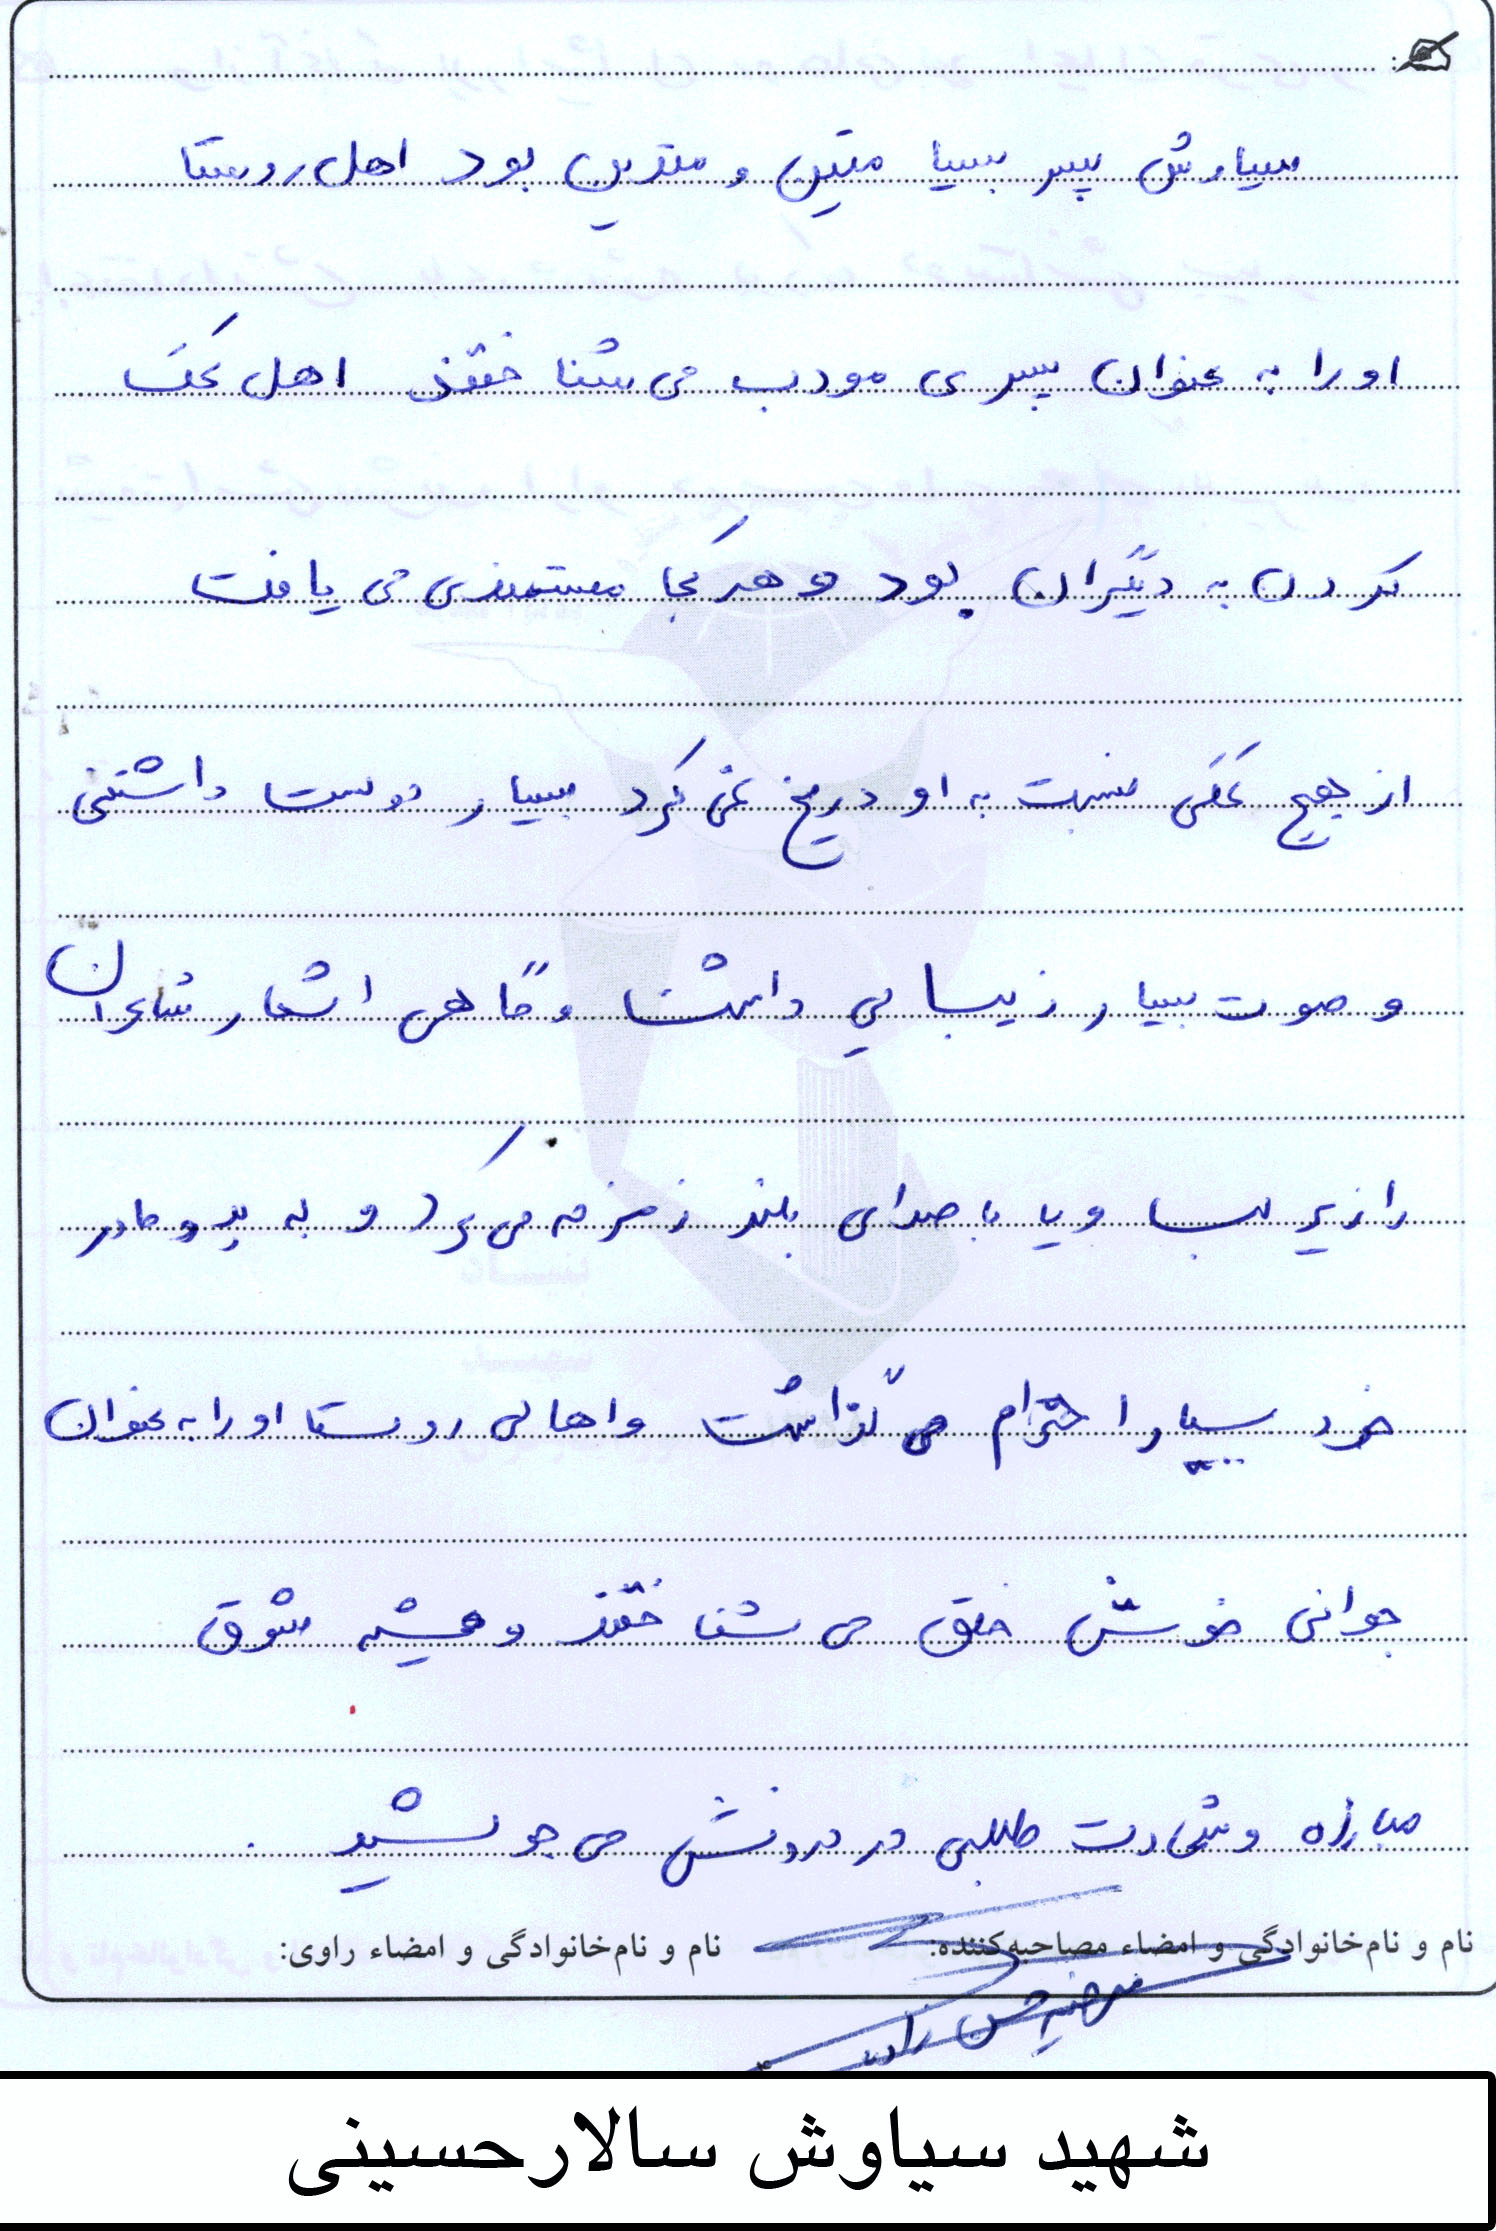 سیاوش پسر بسیا متین و متدین بود اهل روستا
او را به عنوان پسری مودب می شناختند اهل کمک
کردن به دیگران بود و هر کجا مستمندی می یافت
از هیچ کمکی نسبت به او دریغ نمی کرد بسیار دوست داشتنی
و صوت بسیار زیبایی داشت و گاهی اشعار شاعران
را زیر لب و یا با صدای بلند زمزمه می کرد و به پدر و مادر
خود بسیار احترام می گذاشت و اهالی روستا او را به عنوان
جوانی خوش خلق می شناختند و همیشه شوق
مبارزه و شهادت طلبی در درونش می جوشید .
نام و نام‌خانوادگی و امضاء مصاحبه‌کننده: نام و نام‌خانوادگی و امضاء راوی:
شهید سیاوش سالارحسینی